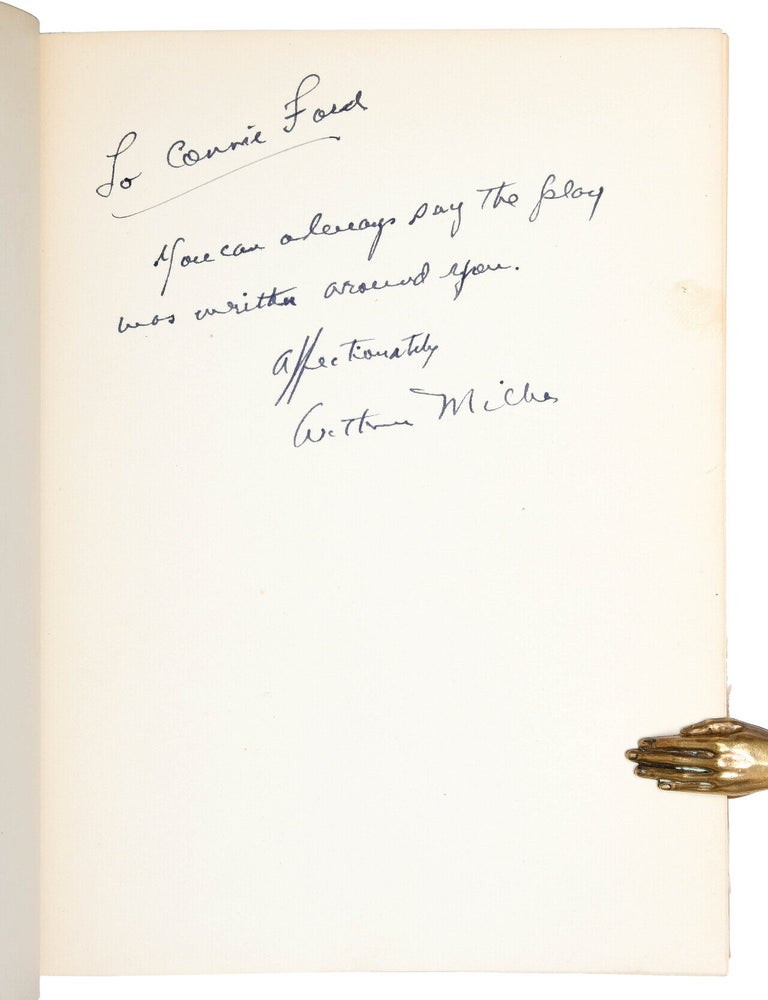 To Connie Ford
You can always say the play
was written around you.
Affectionately
Arthur Miller